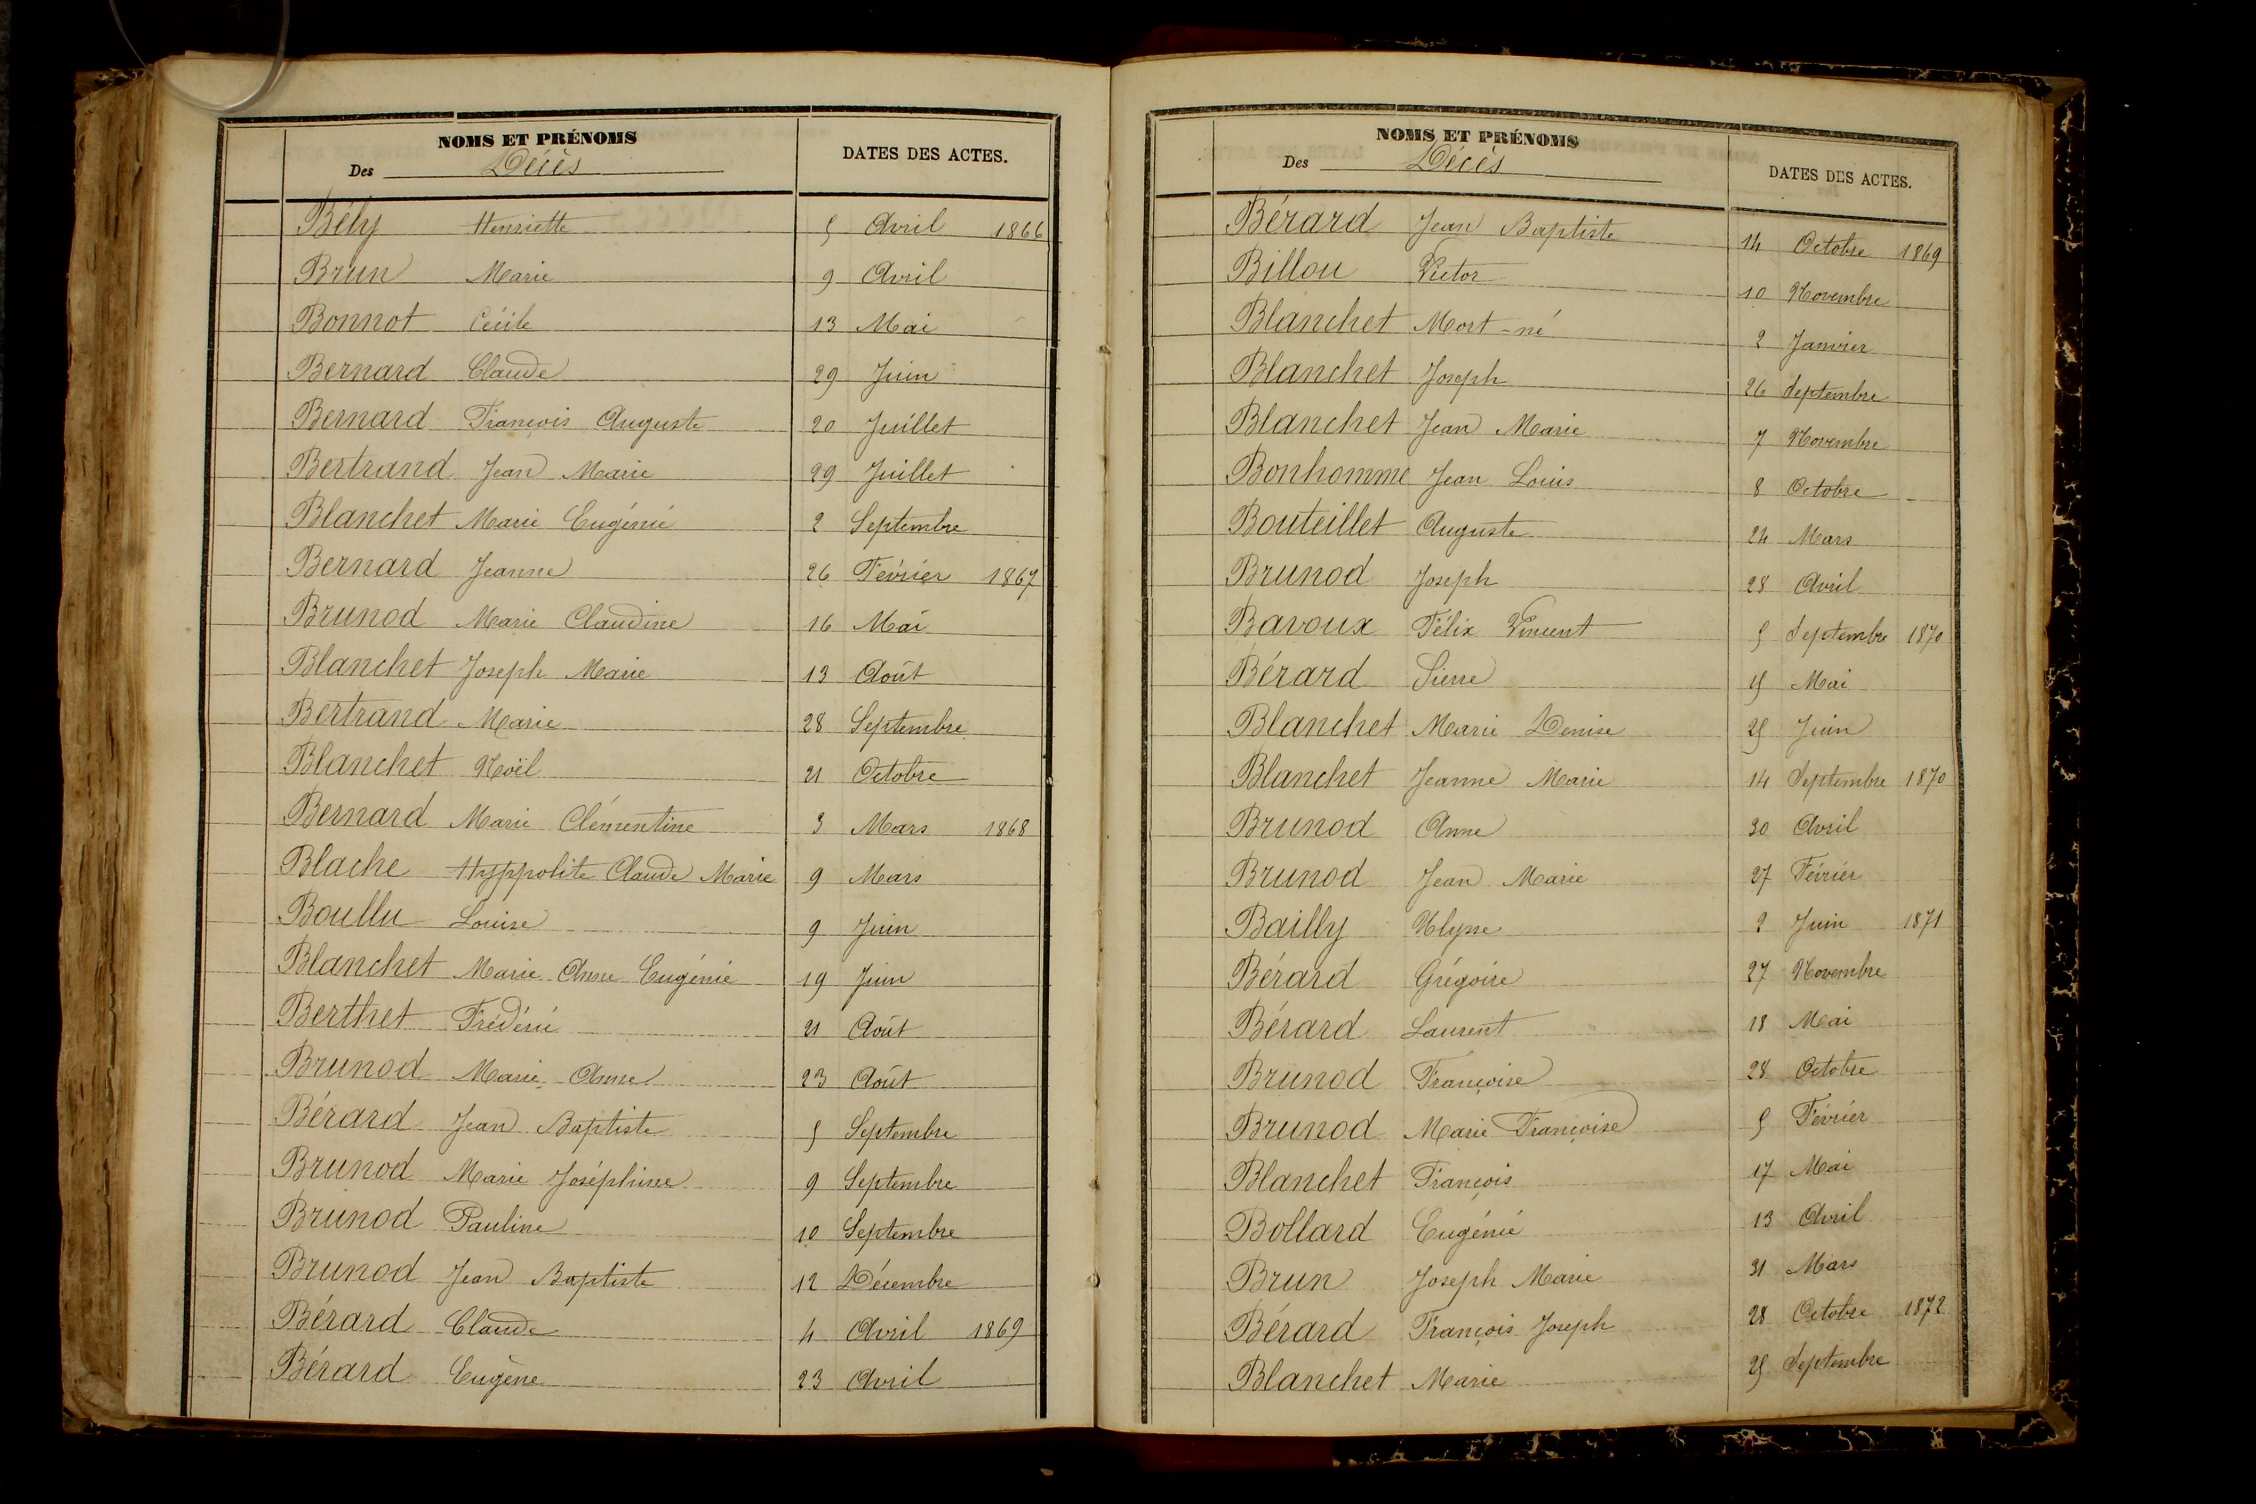 NOMS ET PRÉNOMS
Des Décès
DATES DES ACTES.
Bély Henriette 5 Avril 1866
Brun Marie 9 Avril
Bonnot Cécile 13 Mai
Bernard Claude 29 Juin
Bernard François Auguste 20 Juillet
Bertrand Jean Marie 29 Juillet
Blanchet Marie Eugénie 2 Septembre
Bernard Jeanne 26 Février 1867
Brunod Marie Claudine 16 Mai
Blanchet Joseph Marie 13 Août
Bertrand Marie 28 Septembre
Blanchet Noël 21 Octobre
Bernard Marie Clémentine 3 Mars 1868
Blache Hyppolite Claude Marie 9 Mars
Boullu Louise 9 Juin
Blanchet Marie Anne Eugénie 19 Juin
Berthet Frédéric 21 Août
Brunod Marie Anne 23 Août
Bérard Jean Baptiste 5 Septembre
Brunod Marie Joséphine 9 Septembre
Brunod Pauline 10 Septembre
Brunod Jean Baptiste 12 Décembre
Bérard Claude 4 Avril 1869
Bérard Eugène 23 Avril
NOMS ET PRÉNOMS
Des Décès
DATES DES ACTES.
Bérard Jean Baptiste 14 Octobre 1869
Billou Victor 10 Novembre
Blanchet Mort-né 2 Janvier
Blanchet Joseph 26 Septembre
Blanchet Jean Marie 7 Novembre
Bonhomme Jean Louis 8 Octobre
Bouteillet Auguste 24 Mars
Brunod Joseph 28 Avril
Bavoux Félix Vincent 5 Septembre 1870
Bérard Pierre 15 Mai
Blanchet Marie Denise 25 Juin
Blanchet Jeanne Marie 14 Septembre 1870
Brunod Anne 30 Avril
Brunod Jean Marie 27 Février
Bailly Ulysse 2 Juin 1871
Bérard Grégoire 27 Novembre
Bérard Laurent 18 Mai
Brunod Françoise 28 Octobre
Brunod Marie Françoise 5 Février
Blanchet François 17 Mai
Bollard Eugénie 13 Avril
Brun Joseph Marie 31 Mars
Bérard François Joseph 28 Octobre 1872
Blanchet Marie 25 Septembre